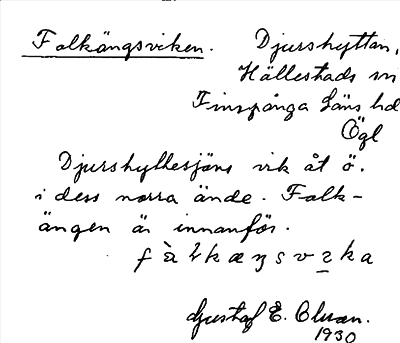 Falkängsviken. Djurshyttan,
Hällestads sn
Finspånga läns hd
Ögl
Djurshyttesjöns vik åt ö.
i dess norra ände. Falk-
ängen är innanför.
Gustaf E. Olsson.
1930